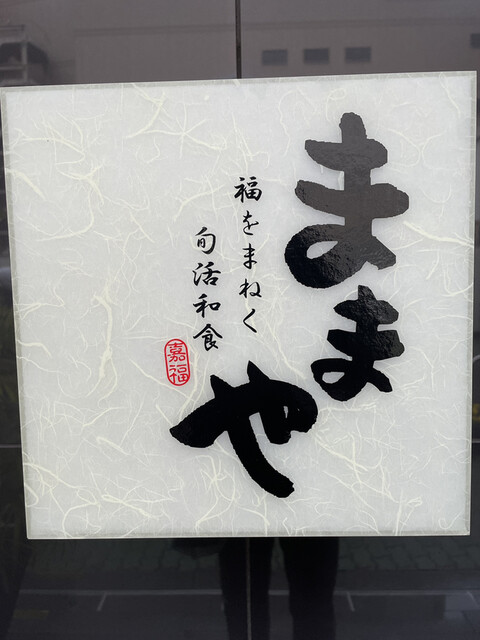 ままや
福をまねく
旬活和食
嘉福